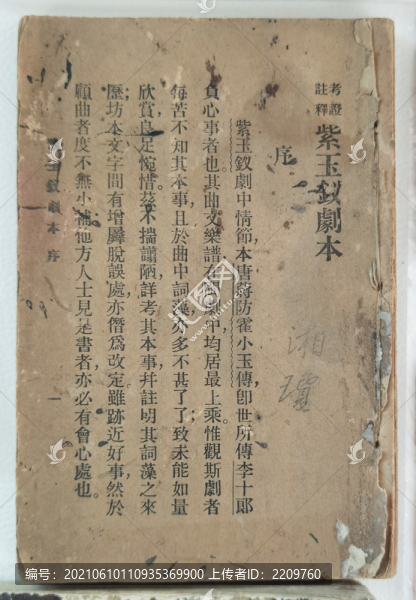 考證
註釋
紫玉釵劇本
序
紫玉釵劇中情節,本唐蔣防霍小玉傳,卽世所傳李十郎
負心事者也。其曲文樂譜,在 中均居最上乘。惟觀斯劇者
每苦不知其本事,且於曲中詞藻,亦多不甚了了,致未能如量
欣賞,良足惋惜。茲不揣譾陋,詳考其本事,幷註明其詞藻之來
歷;坊本文字間有增羼脫誤處,亦僭爲改定。雖跡近好事,然於
顧曲者度不無小補;他方人士見是書者,亦必有會心處也。
玉釵劇本 序
一
湘
编号：20210610110935369900 上传者ID：2209760